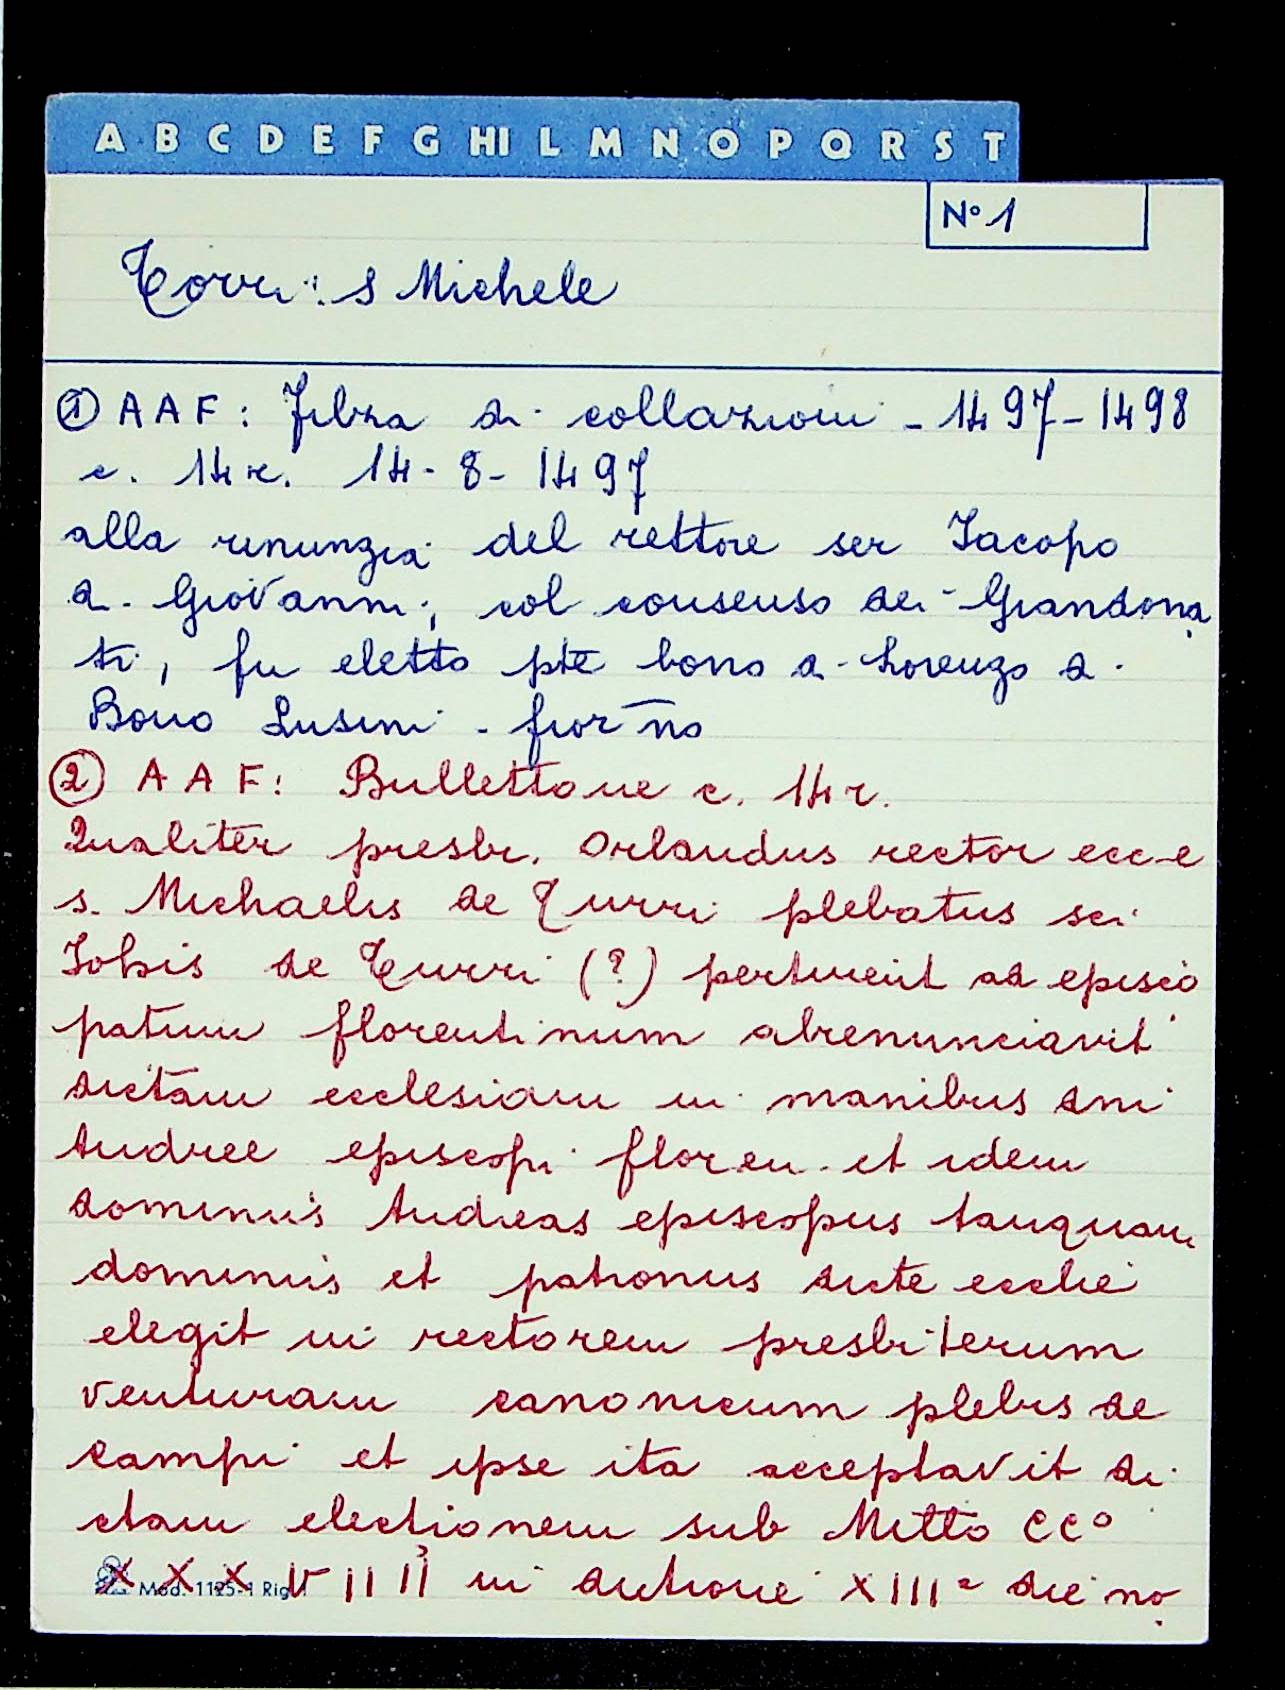 A B C D E F G HI L M N O P Q R S T
N° 1
Torri: S Michele
① A A F: Filza di collazioni - 1497-1498
c. 14 r. 14-8-1497
alla rinunzia del rettore ser Iacopo
di Giovanni, col consenso dei Giandona
ti, fu eletto pte bono di Lorenzo di
Bono Lusini - fior no
② A A F: Bullettone c. 14 r.
Qualiter presbr. Orlandus rector ecc-e
s. Michaelis de Turri plebatus sci
Iohis de Turri (?) pertinent ad episco
patum florentinum abrenunciavit
dictam ecclesiam in manibus dni
Andree episcopi floren. et idem
dominus Andreas episcopus tanquam
dominus et patronus dicte ecclie
elegit in rectorem presbiterum
venturam canonicum plebis de
campi et ipse ita acceptavit di
ctam electionem sub Mitto CC°
X X X V II II in dictione XIII a die no
Mod. 1125-1 Rig. 1